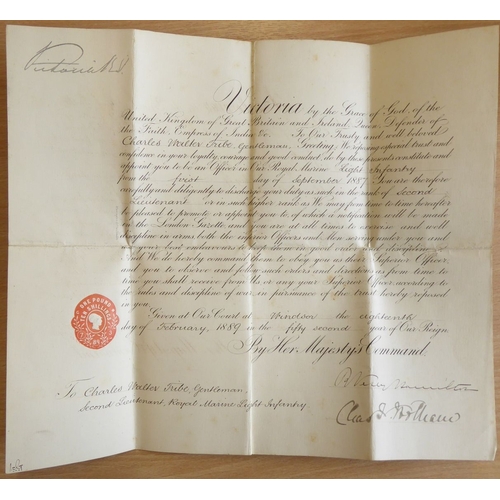 Victoria R.I.
Victoria by the Grace of God, of the
United Kingdom of Great Britain and Ireland Queen, Defender of
the Faith, Empress of India &c. To Our Trusty and well beloved
Charles Walter Tribe, Gentleman, Greeting, We reposing especial trust and
confidence in your loyalty, courage and good conduct, do by these presents constitute and
appoint you to be an Officer in Our Royal Marine Light Infantry
from the first day of September 1887. You are therefore
carefully and diligently to discharge your duty as such in the rank of Second
Lieutenant or in such higher rank as We may from time to time hereafter
be pleased to promote or appoint you to, of which a notification will be made
in the London Gazette and you are at all times to exercise and well
discipline in arms both the inferior Officers and Men serving under you and
use your best endeavours to keep them in good order and discipline,
And We do hereby command them to obey you as their Superior Officer,
and you to observe and follow such orders and directions as from time to
time you shall receive from Us or any your Superior Officer, according to
the rules and discipline of war, in pursuance of the trust hereby reposed
in you.
Given at Our Court at Windsor the eighteenth
day of February, 1889 in the fifty second year of Our Reign.
By Her Majesty's Command.
ONE POUND
TEN SHILLINGS
To Charles Walter Tribe, Gentleman,
Second Lieutenant, Royal Marine Light Infantry
Hamilton